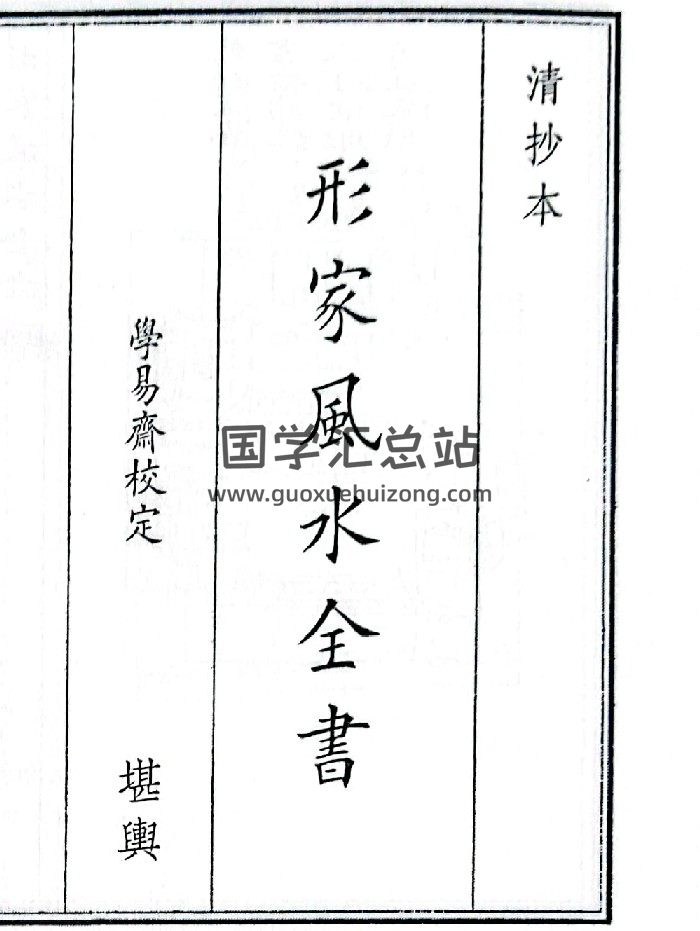 清抄本
形家風水全書
學易齋校定
堪輿
国学汇总站
www.guoxuehuizong.com